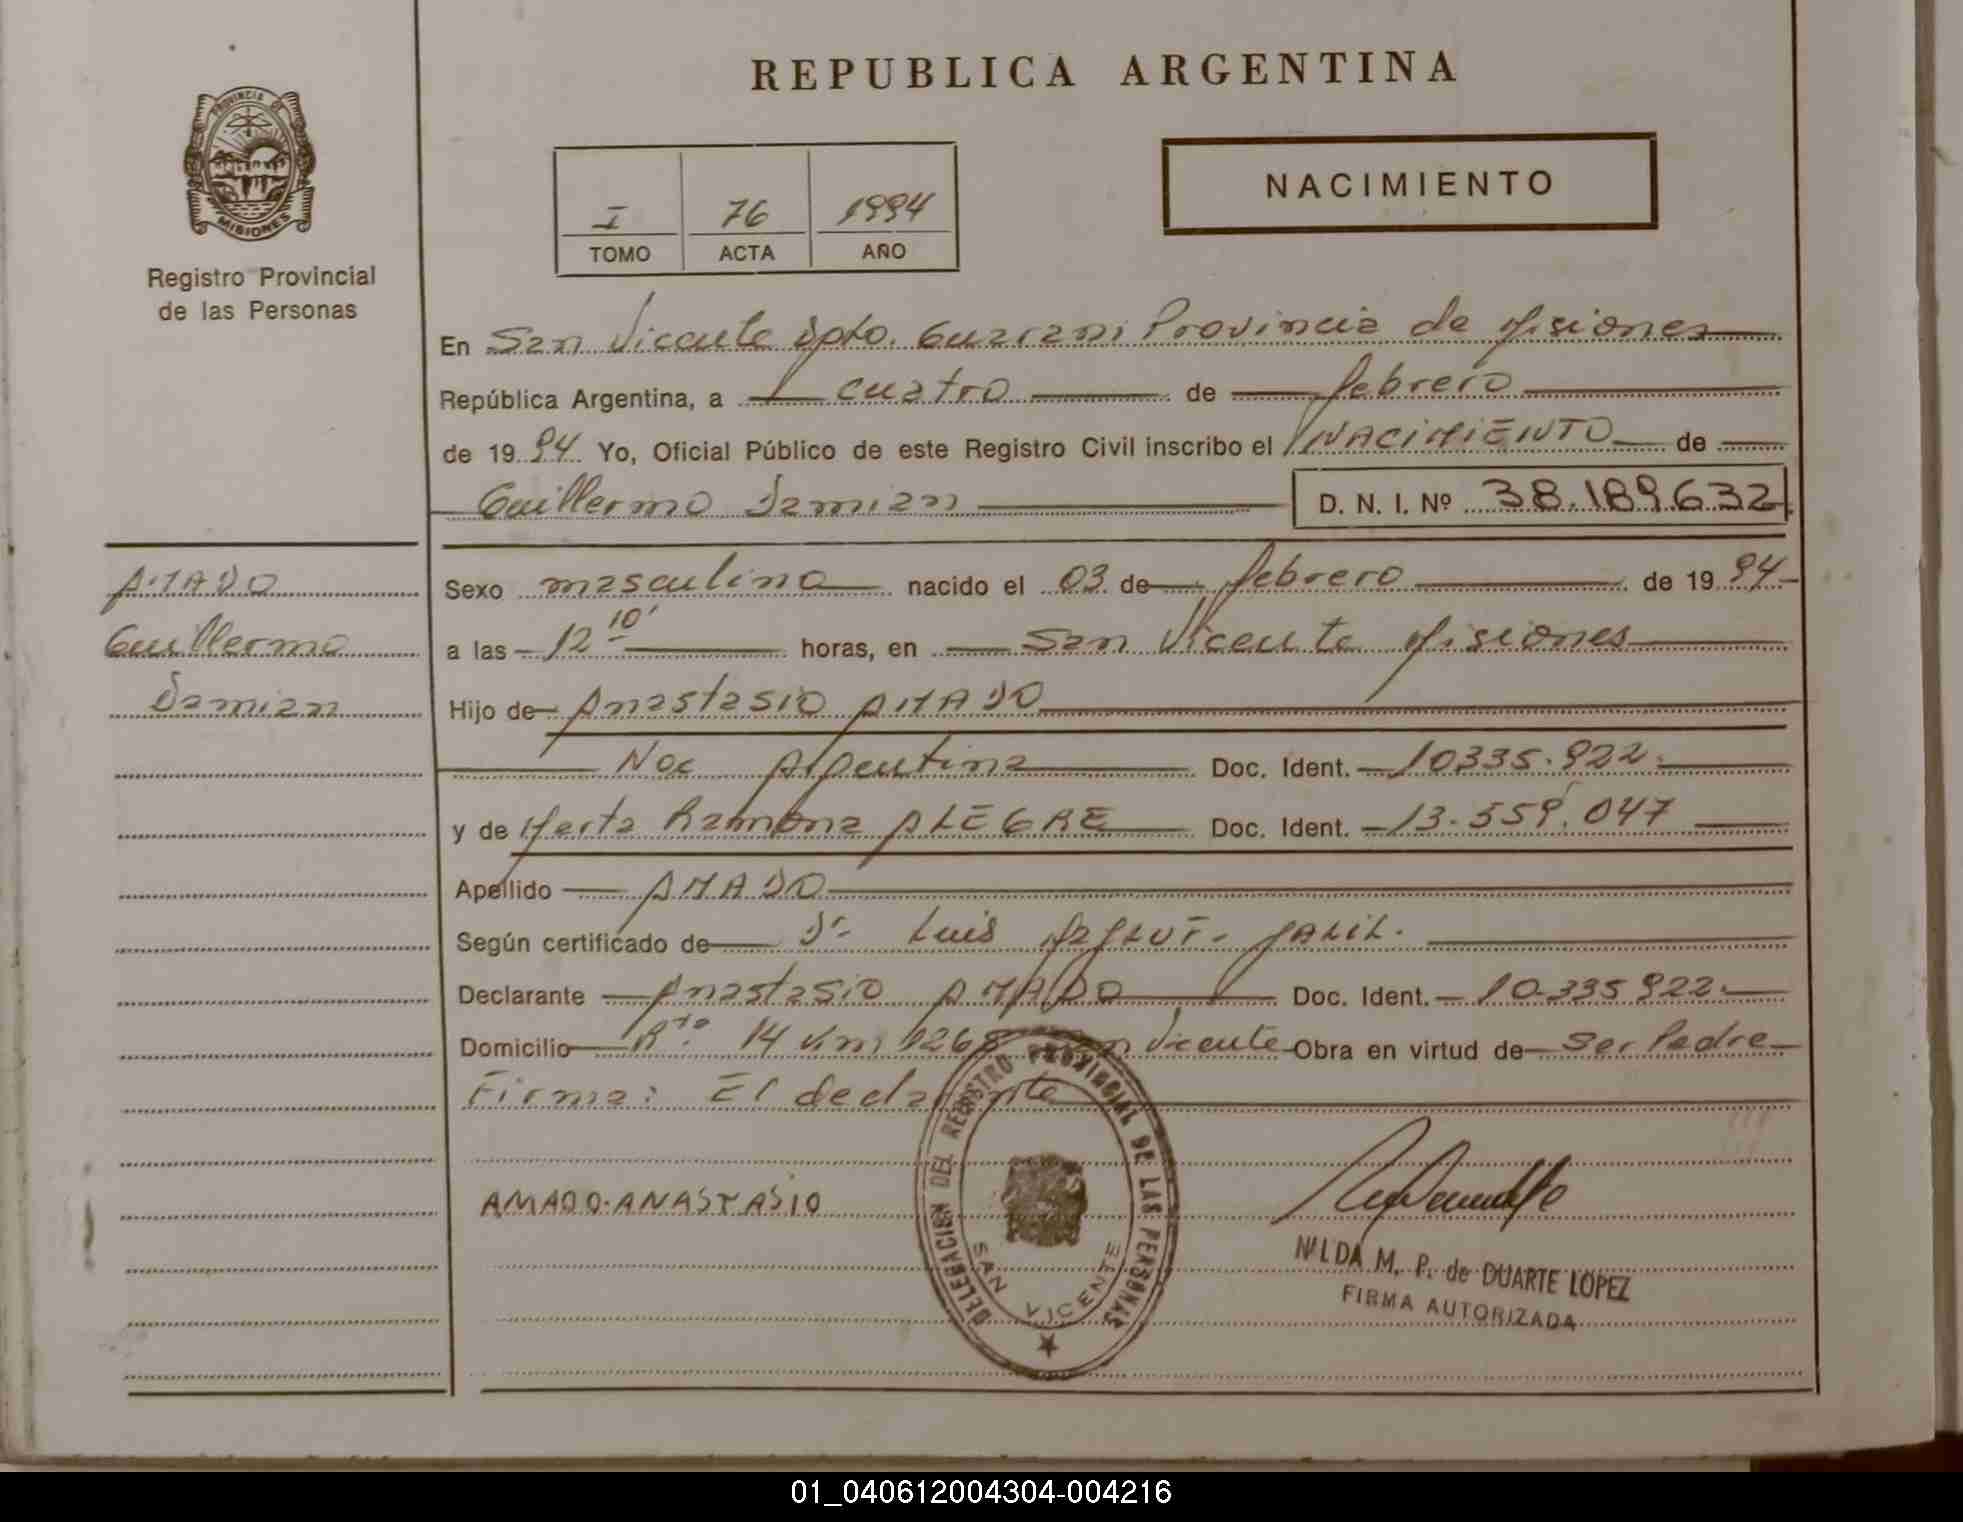 REPUBLICA ARGENTINA
PROVINCIA DE
MISIONES
Registro Provincial
de las Personas
NACIMIENTO
I 76 1994
TOMO ACTA AÑO
En San Vicente Dpto. Guarani Provincia de Misiones
República Argentina, a cuatro de febrero
de 1994 Yo, Oficial Público de este Registro Civil inscribo el NACIMIENTO de
Guillermo Damian D. N. I. Nº 38.189.632
AMADO
Guillermo
Damian
Sexo masculino nacido el 03 de febrero de 1994
a las 12 10' horas, en San Vicente Misiones
Hijo de Anastasio AMADO
Nac Argentina Doc. Ident. 10335.922
y de Marta Ramona ALEGRE Doc. Ident. 13.559.047
Apellido AMADO
Según certificado de Dr Luis
Declarante Anastasio AMADO Doc. Ident. 10.335922
Domicilio Rta. 14 Km 1268 San Vicente Obra en virtud de Ser Padre
Firma: El declarante
AMADO-ANASTASIO
DELEGACION DEL REGISTRO PROVINCIAL DE LAS PERSONAS
SAN VICENTE
NILDA M. P. de DUARTE LOPEZ
FIRMA AUTORIZADA
01_040612004304-004216